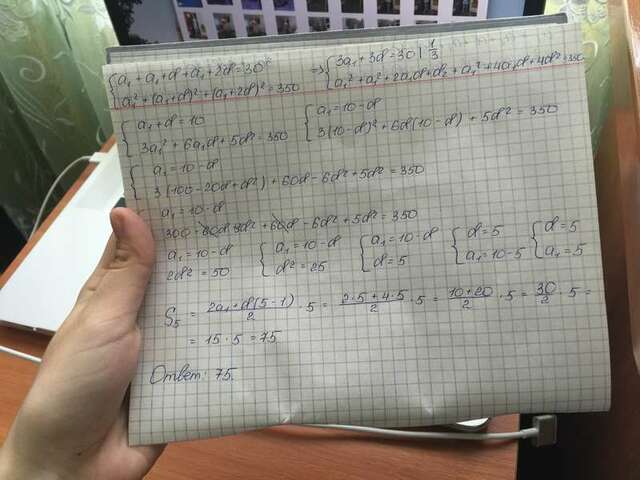 {a₁+a₁+d+a₁+2d=30 ⇒ {3a₁+3d=30 | 1/3
{a₁²+(a₁+d)²+(a₁+2d)²=350 {a₁²+a₁²+2a₁d+d²+a₁²+4a₁d+4d²=350
{a₁+d=10 {a₁=10-d
{3a₁²+6a₁d+5d²=350 {3(10-d)²+6d(10-d)+5d²=350
{a₁=10-d
{3(100-20d+d²)+60d-6d²+5d²=350
{a₁=10-d
300-60d+3d²+60d-6d²+5d²=350
a₁=10-d {a₁=10-d {a₁=10-d {d=5 {d=5
2d²=50 {d²=25 {d=5 {a₁=10-5 {a₁=5
S₅ = (2a₁+d(5-1))/2 · 5 = (2·5+4·5)/2 · 5 = (10+20)/2 · 5 = 30/2 · 5 =
= 15·5=75
Ответ: 75.